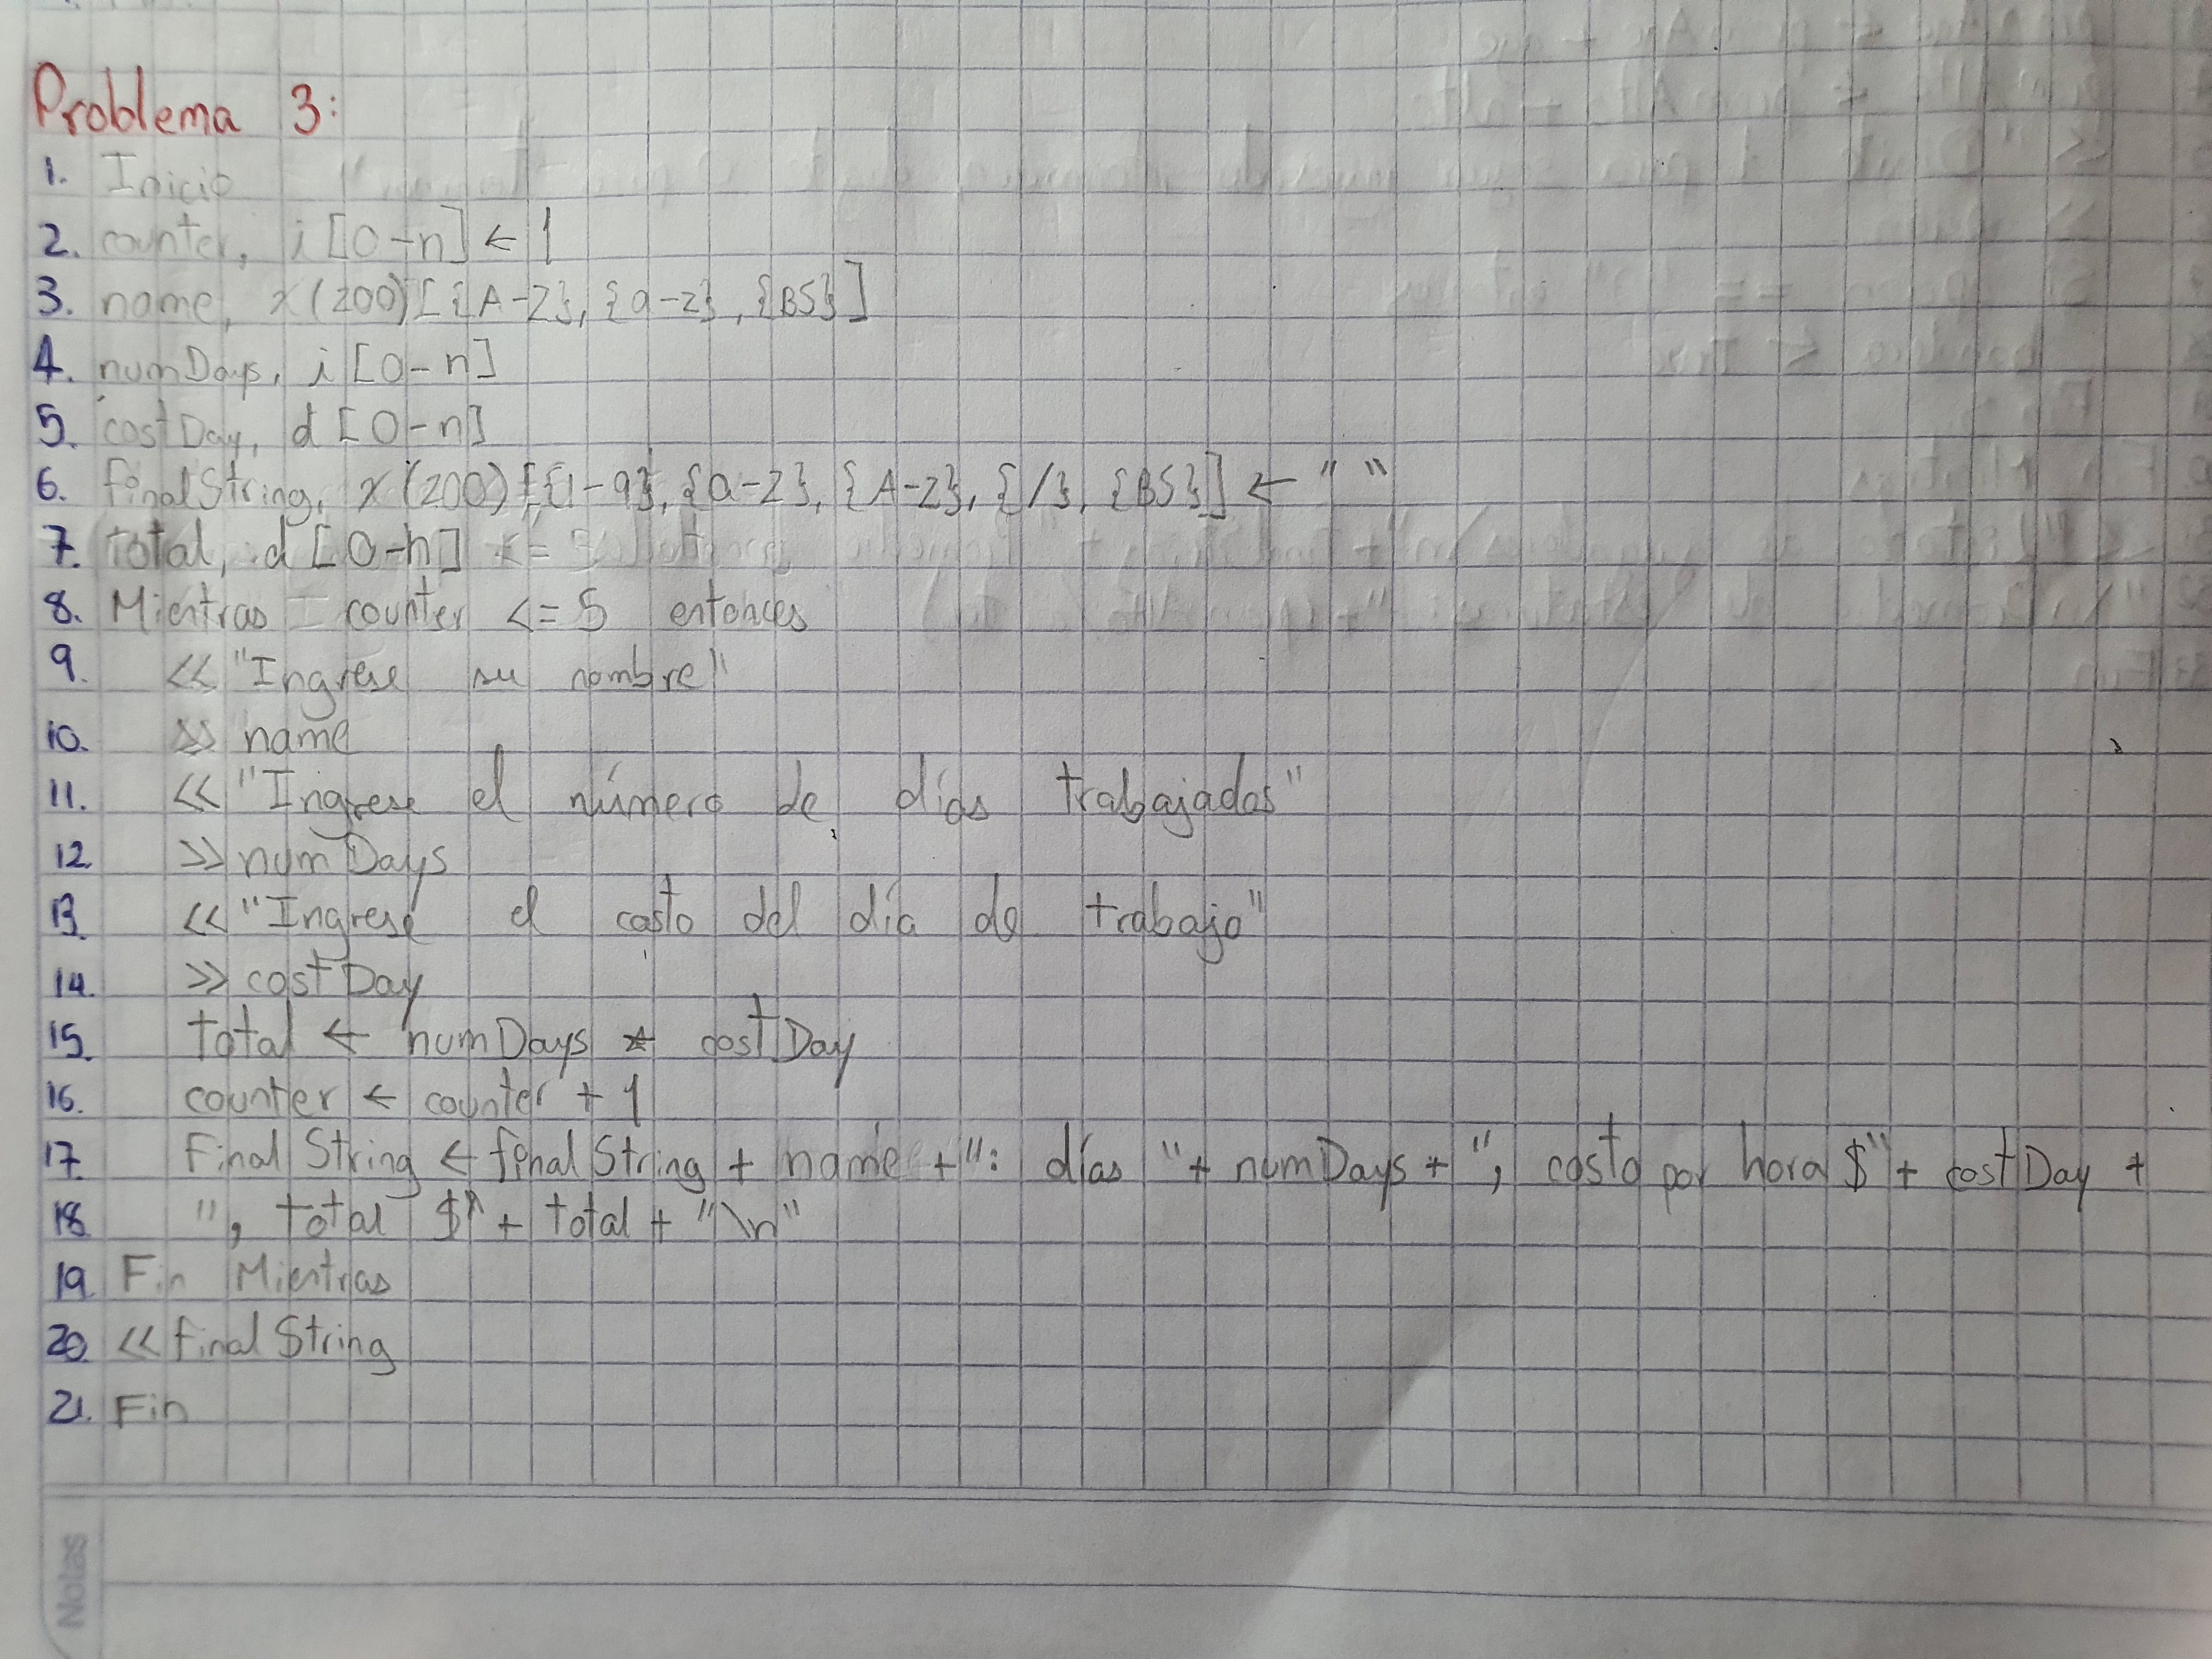 Problema 3:
1. Inicio
2. counter, i [0-n] ← 1
3. name, x(200)[{A-Z}, {a-z}, {BS}]
4. numDays, i [0-n]
5. costDay, d [0-n]
6. finalString, x(200)[{1-9}, {a-z}, {A-Z}, {/}, {BS}] ← " "
7. total, d [0-n]
8. Mientras counter <= 5 entonces
9. << "Ingrese su nombre"
10. >> name
11. << "Ingrese el número de días trabajados"
12. >> numDays
13. << "Ingrese el costo del día de trabajo"
14. >> costDay
15. total ← numDays * costDay
16. counter ← counter + 1
17. Final String ← final String + name + ": días " + numDays + ", costo por hora $" + costDay +
18. ", total $" + total + "\n"
19. Fin Mientras
20. << final String
21. Fin
Notas